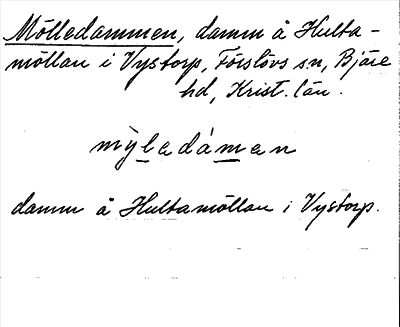 Mölledammen, damm å Hulta-
möllan i Vystorp, Förslövs sn, Bjäre
hd, Krist. län.
mỳledámen
damm å Hultamöllan i Vystorp.